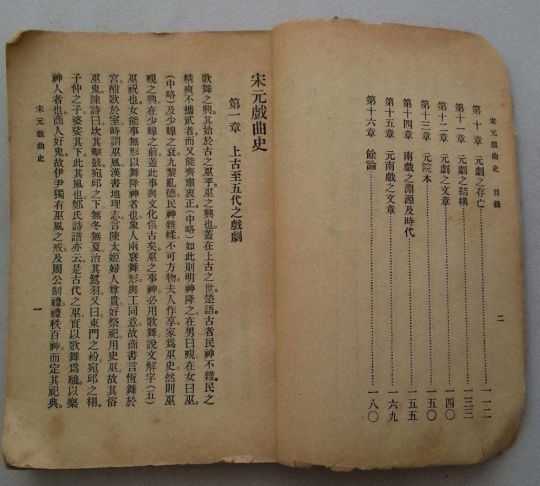 宋元戲曲史 目錄
二
第十章 元劇之存亡……一一二
第十一章 元劇之結構……一三三
第十二章 元劇之文章……一四〇
第十三章 元院本……一五〇
第十四章 南戲之淵源及時代……一五五
第十五章 元南戲之文章……一六九
第十六章 餘論……一八〇
宋元戲曲史
第一章 上古至五代之戲劇
歌舞之興其始於古之巫乎巫之興也蓋在上古之世楚語古者民神不雜民之
精爽不攜貳者而又能齊肅衷正(中略)如此則明神降之在男曰覡在女曰巫
(中略)及少皞之衰九黎亂德民神雜糅不可方物夫人作享家爲巫史然則巫
覡之興在少皞之前蓋此事與文化俱古矣巫之事神必用歌舞說文解字(五)
巫祝也女能事無形以舞降神者也象人兩褎舞形與工同意故商書言恆舞於
宮酣歌於室時謂巫風漢書地理志言陳太姬婦人尊貴好祭祀用史巫故其俗
巫鬼陳詩曰坎其擊鼓宛邱之下無冬無夏治其鷺羽又曰東門之枌宛邱之栩
子仲之子婆娑其下此其風也鄭氏詩譜亦云是古代之巫實以歌舞爲職以樂
神人者也商人好鬼故伊尹獨有巫風之戒及周公制禮禮秩百神而定其祀典
宋元戲曲史
一